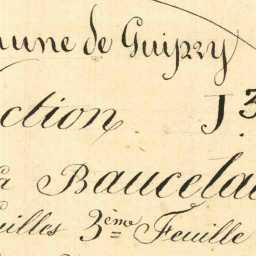 mune de Guipry
ction J 3
la Baucela
uilles 3ème Feuille